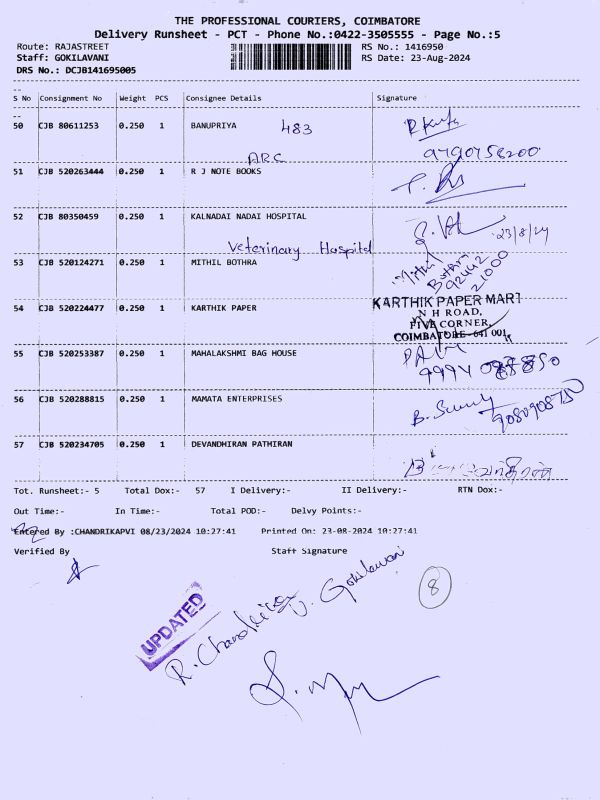 THE PROFESSIONAL COURIERS, COIMBATORE
Delivery Runsheet - PCT - Phone No.:0422-3505555 - Page No.:5
Route: RAJASTREET RS No.: 1416950
Staff: GOKILAVANI RS Date: 23-Aug-2024
DRS No.: DCJB141695005
S No Consignment No Weight PCS Consignee Details Signature
50 CJB 80611253 0.250 1 BANUPRIYA 483
9790758200
ARC
51 CJB 520263444 0.250 1 R J NOTE BOOKS
52 CJB 80350459 0.250 1 KALNADAI NADAI HOSPITAL
23/8/24
Veterinary Hospital
53 CJB 520124271 0.250 1 MITHIL BOTHRA Mithil
Bothra
92442
21000
54 CJB 520224477 0.250 1 KARTHIK PAPER KARTHIK PAPER MART
N H ROAD,
FIVE CORNER,
COIMBATORE-641 001.
55 CJB 520253387 0.250 1 MAHALAKSHMI BAG HOUSE
56 CJB 520288815 0.250 1 MAMATA ENTERPRISES
57 CJB 520234705 0.250 1 DEVANDHIRAN PATHIRAN
Tot. Runsheet:- 5 Total Dox:- 57 I Delivery:- II Delivery:- RTN Dox:-
Out Time:- In Time:- Total POD:- Delvy Points:-
Entered By :CHANDRIKAPVI 08/23/2024 10:27:41 Printed On: 23-08-2024 10:27:41
Verified By Staff Signature
UPDATED
R. Chandrika
Gokilavani
8